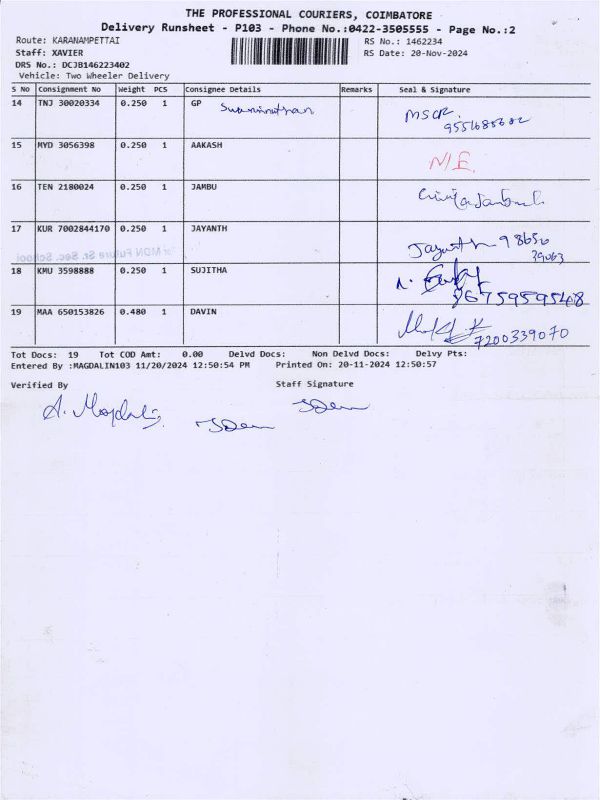 THE PROFESSIONAL COURIERS, COIMBATORE
Delivery Runsheet - P103 - Phone No.:0422-3505555 - Page No.:2
Route: KARANAMPETTAI RS No.: 1462234
Staff: XAVIER RS Date: 20-Nov-2024
DRS No.: DCJB146223402
Vehicle: Two Wheeler Delivery
S No Consignment No Weight PCS Consignee Details Remarks Seal & Signature
14 TNJ 30020334 0.250 1 GP Swaminathan
15 MYD 3056398 0.250 1 AAKASH N/E
16 TEN 2180024 0.250 1 JAMBU
17 KUR 7002844170 0.250 1 JAYANTH Jayanth 98650
39063
for MDN Future Sr. Sec. School
18 KMU 3598888 0.250 1 SUJITHA
19 MAA 650153826 0.480 1 DAVIN 7200339070
Tot Docs: 19 Tot COD Amt: 0.00 Delvd Docs: Non Delvd Docs: Delvy Pts:
Entered By :MAGDALIN103 11/20/2024 12:50:54 PM Printed On: 20-11-2024 12:50:57
Verified By Staff Signature
A. Magdalin